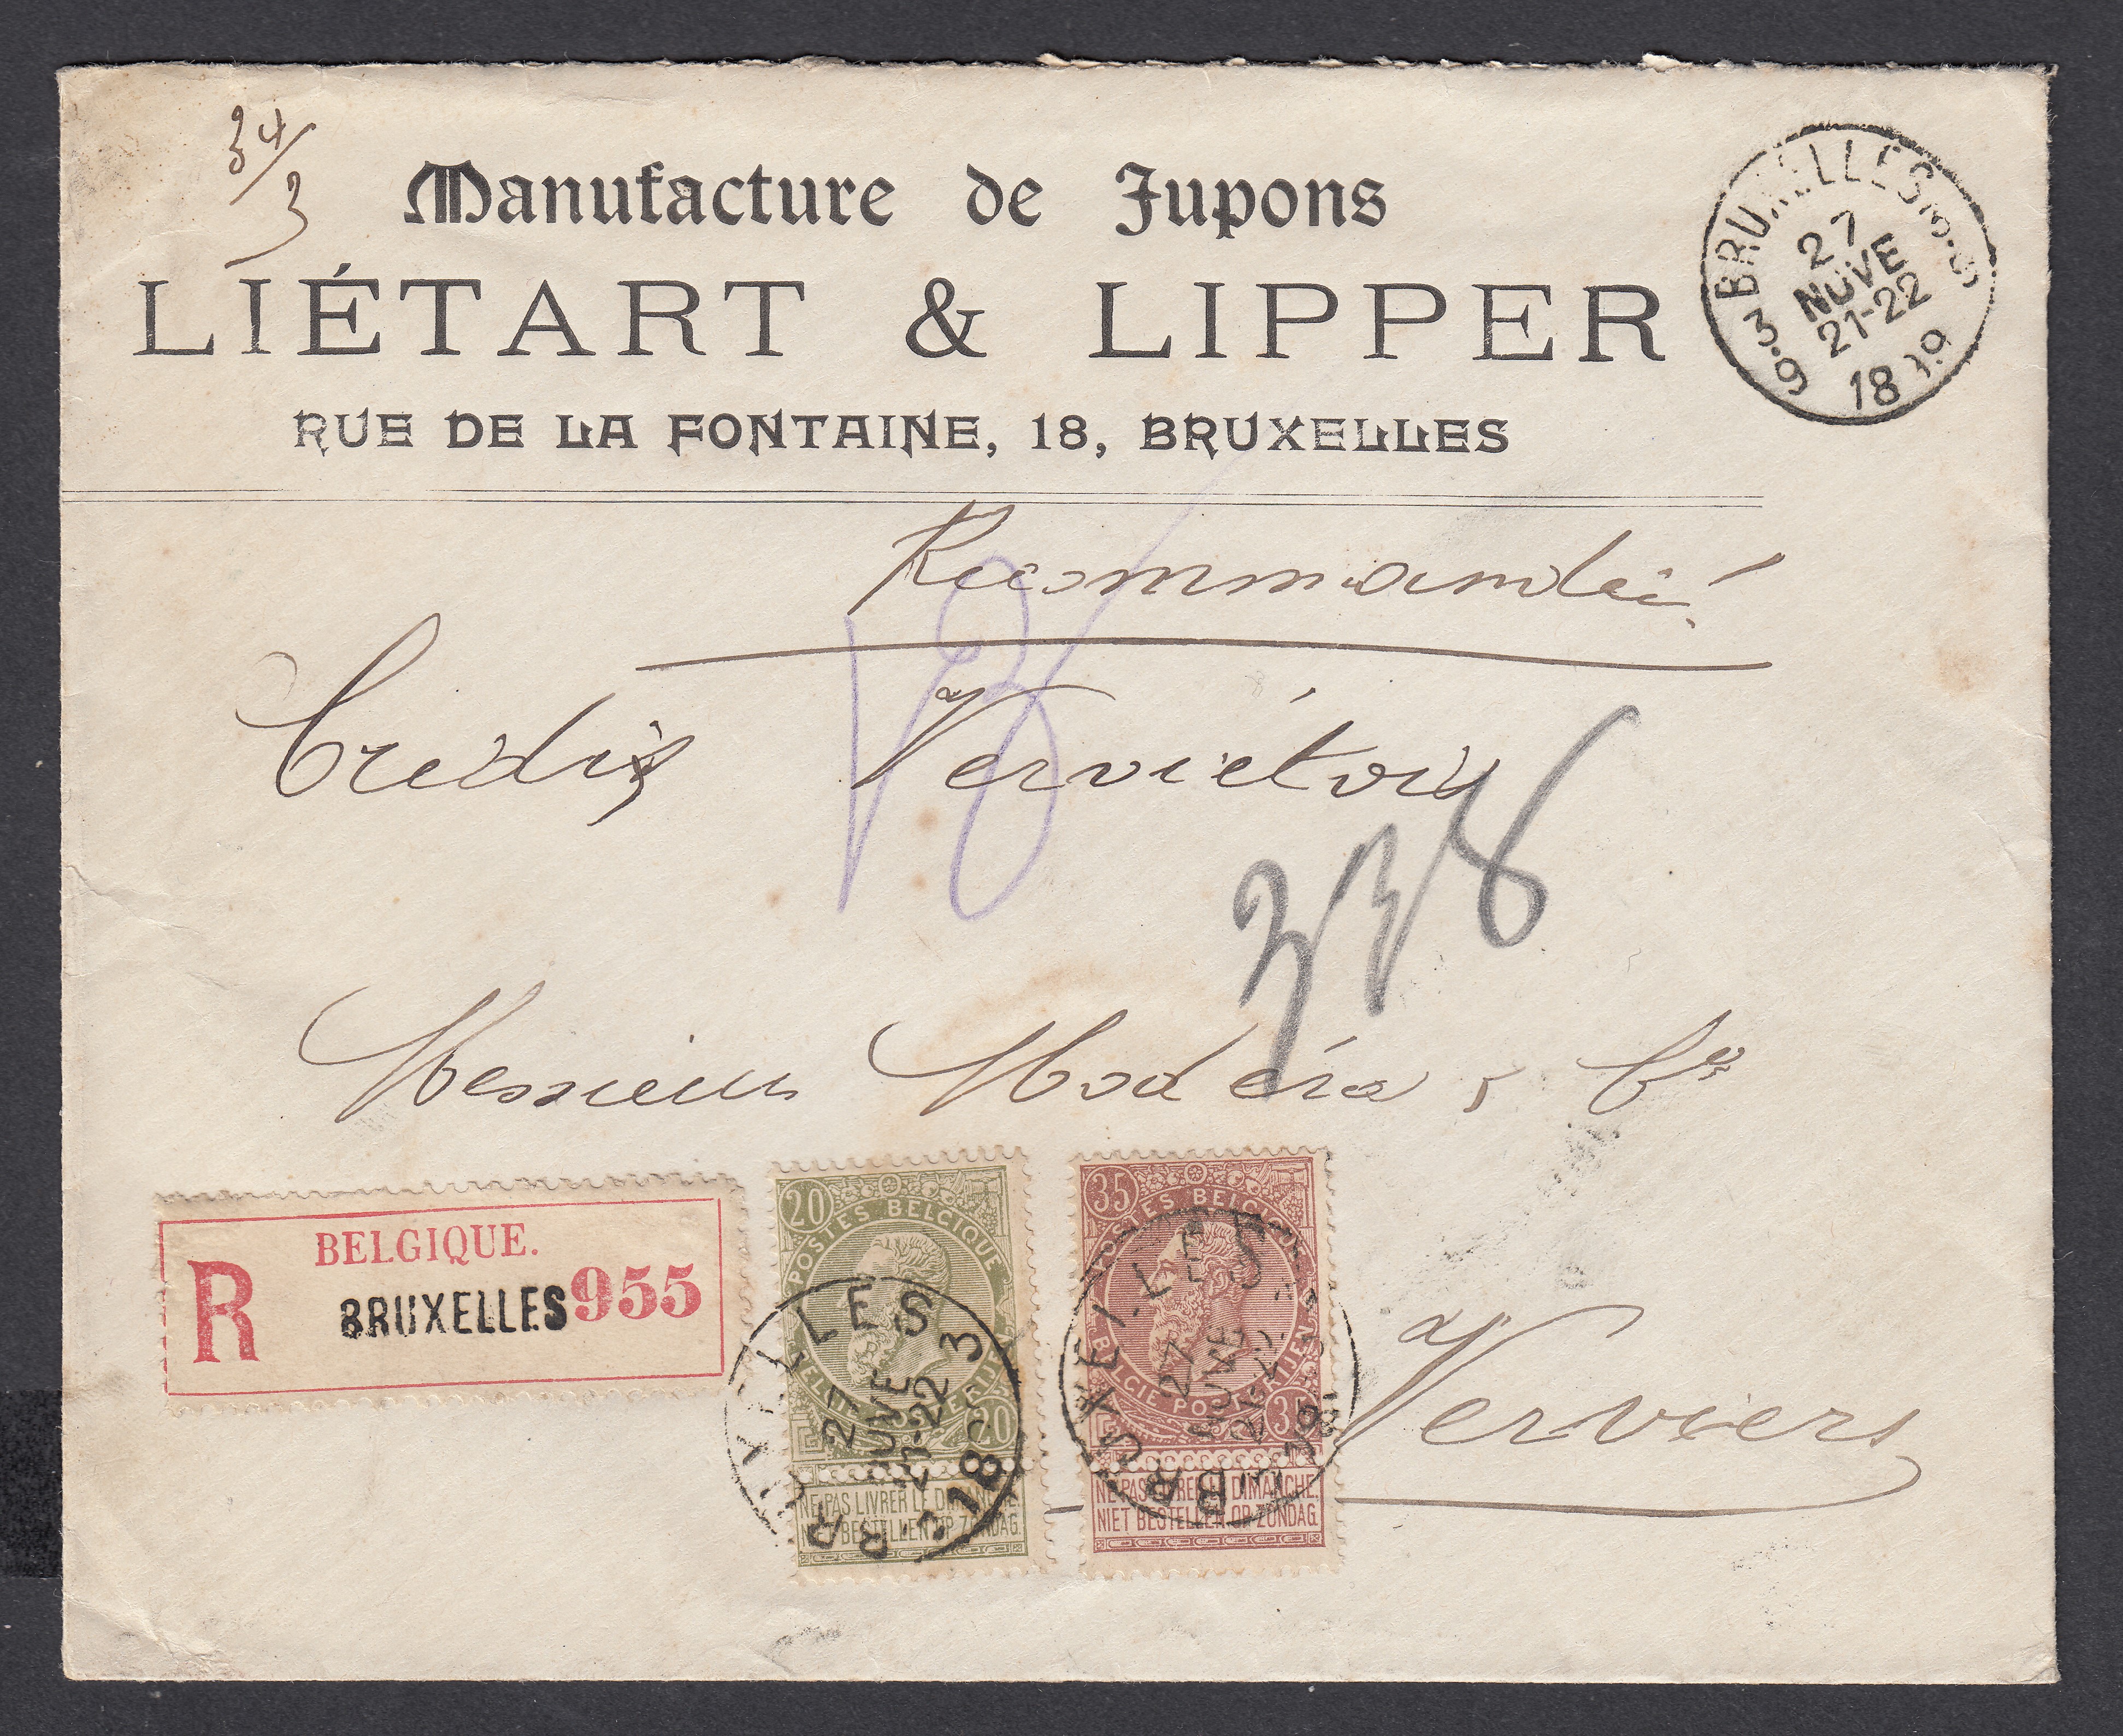 34/3
Manufacture de Jupons
LIÉTART & LIPPER
RUE DE LA FONTAINE, 18, BRUXELLES
BRUXELLES
27
NOVE
21-22
18
Recommandée
Crédit Verviétois
Messieurs Modéra & Cie
Verviers
BELGIQUE.
R BRUXELLES 955
20
POSTES BELGIQUE
20
NE PAS LIVRER LE DIMANCHE.
NIET BESTELLEN OP ZONDAG.
BRUXELLES
27
NOVE
21-22
18
35
POSTES BELGIQUE
BELGIE POSTERIJEN
35
NE PAS LIVRER LE DIMANCHE.
NIET BESTELLEN OP ZONDAG.
BRUXELLES
27
NOVE